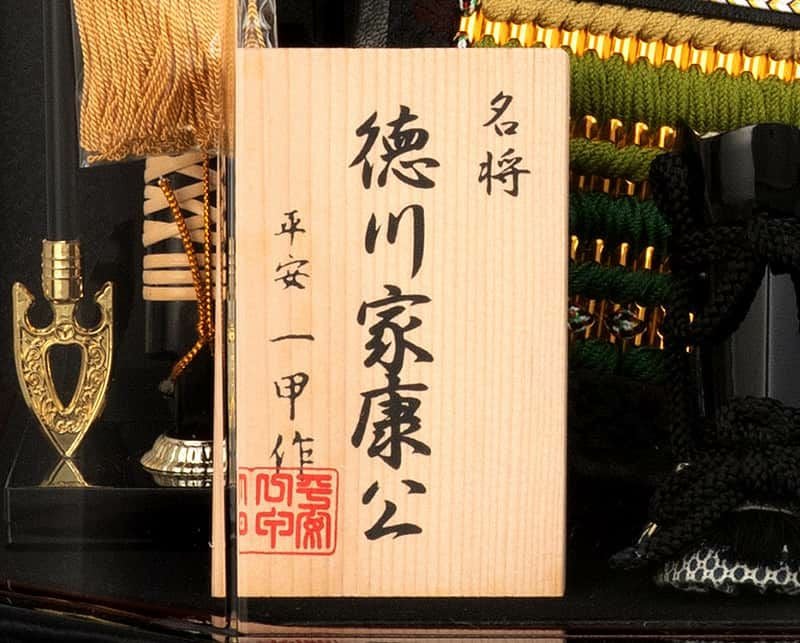 名将
徳川家康公
平安一甲作